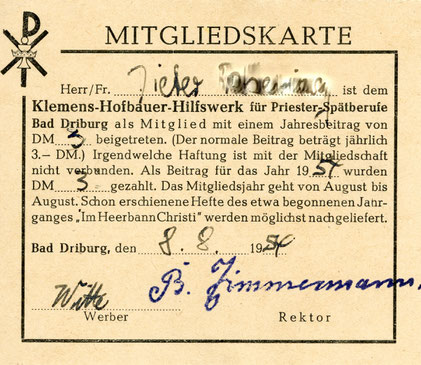 MITGLIEDSKARTE
Herr/Fr. Dieter ist dem
Klemens-Hofbauer-Hilfswerk für Priester-Spätberufe
Bad Driburg als Mitglied mit einem Jahresbeitrag von
DM 3 beigetreten. (Der normale Beitrag beträgt jährlich
3.– DM.) Irgendwelche Haftung ist mit der Mitgliedschaft
nicht verbunden. Als Beitrag für das Jahr 195 wurden
DM 3 gezahlt. Das Mitgliedsjahr geht von August bis
August. Schon erschienene Hefte des etwa begonnenen Jahr-
ganges „Im Heerbann Christi" werden möglichst nachgeliefert.
Bad Driburg, den 8. 8. 195
Witte B. Zimmermann
Werber Rektor